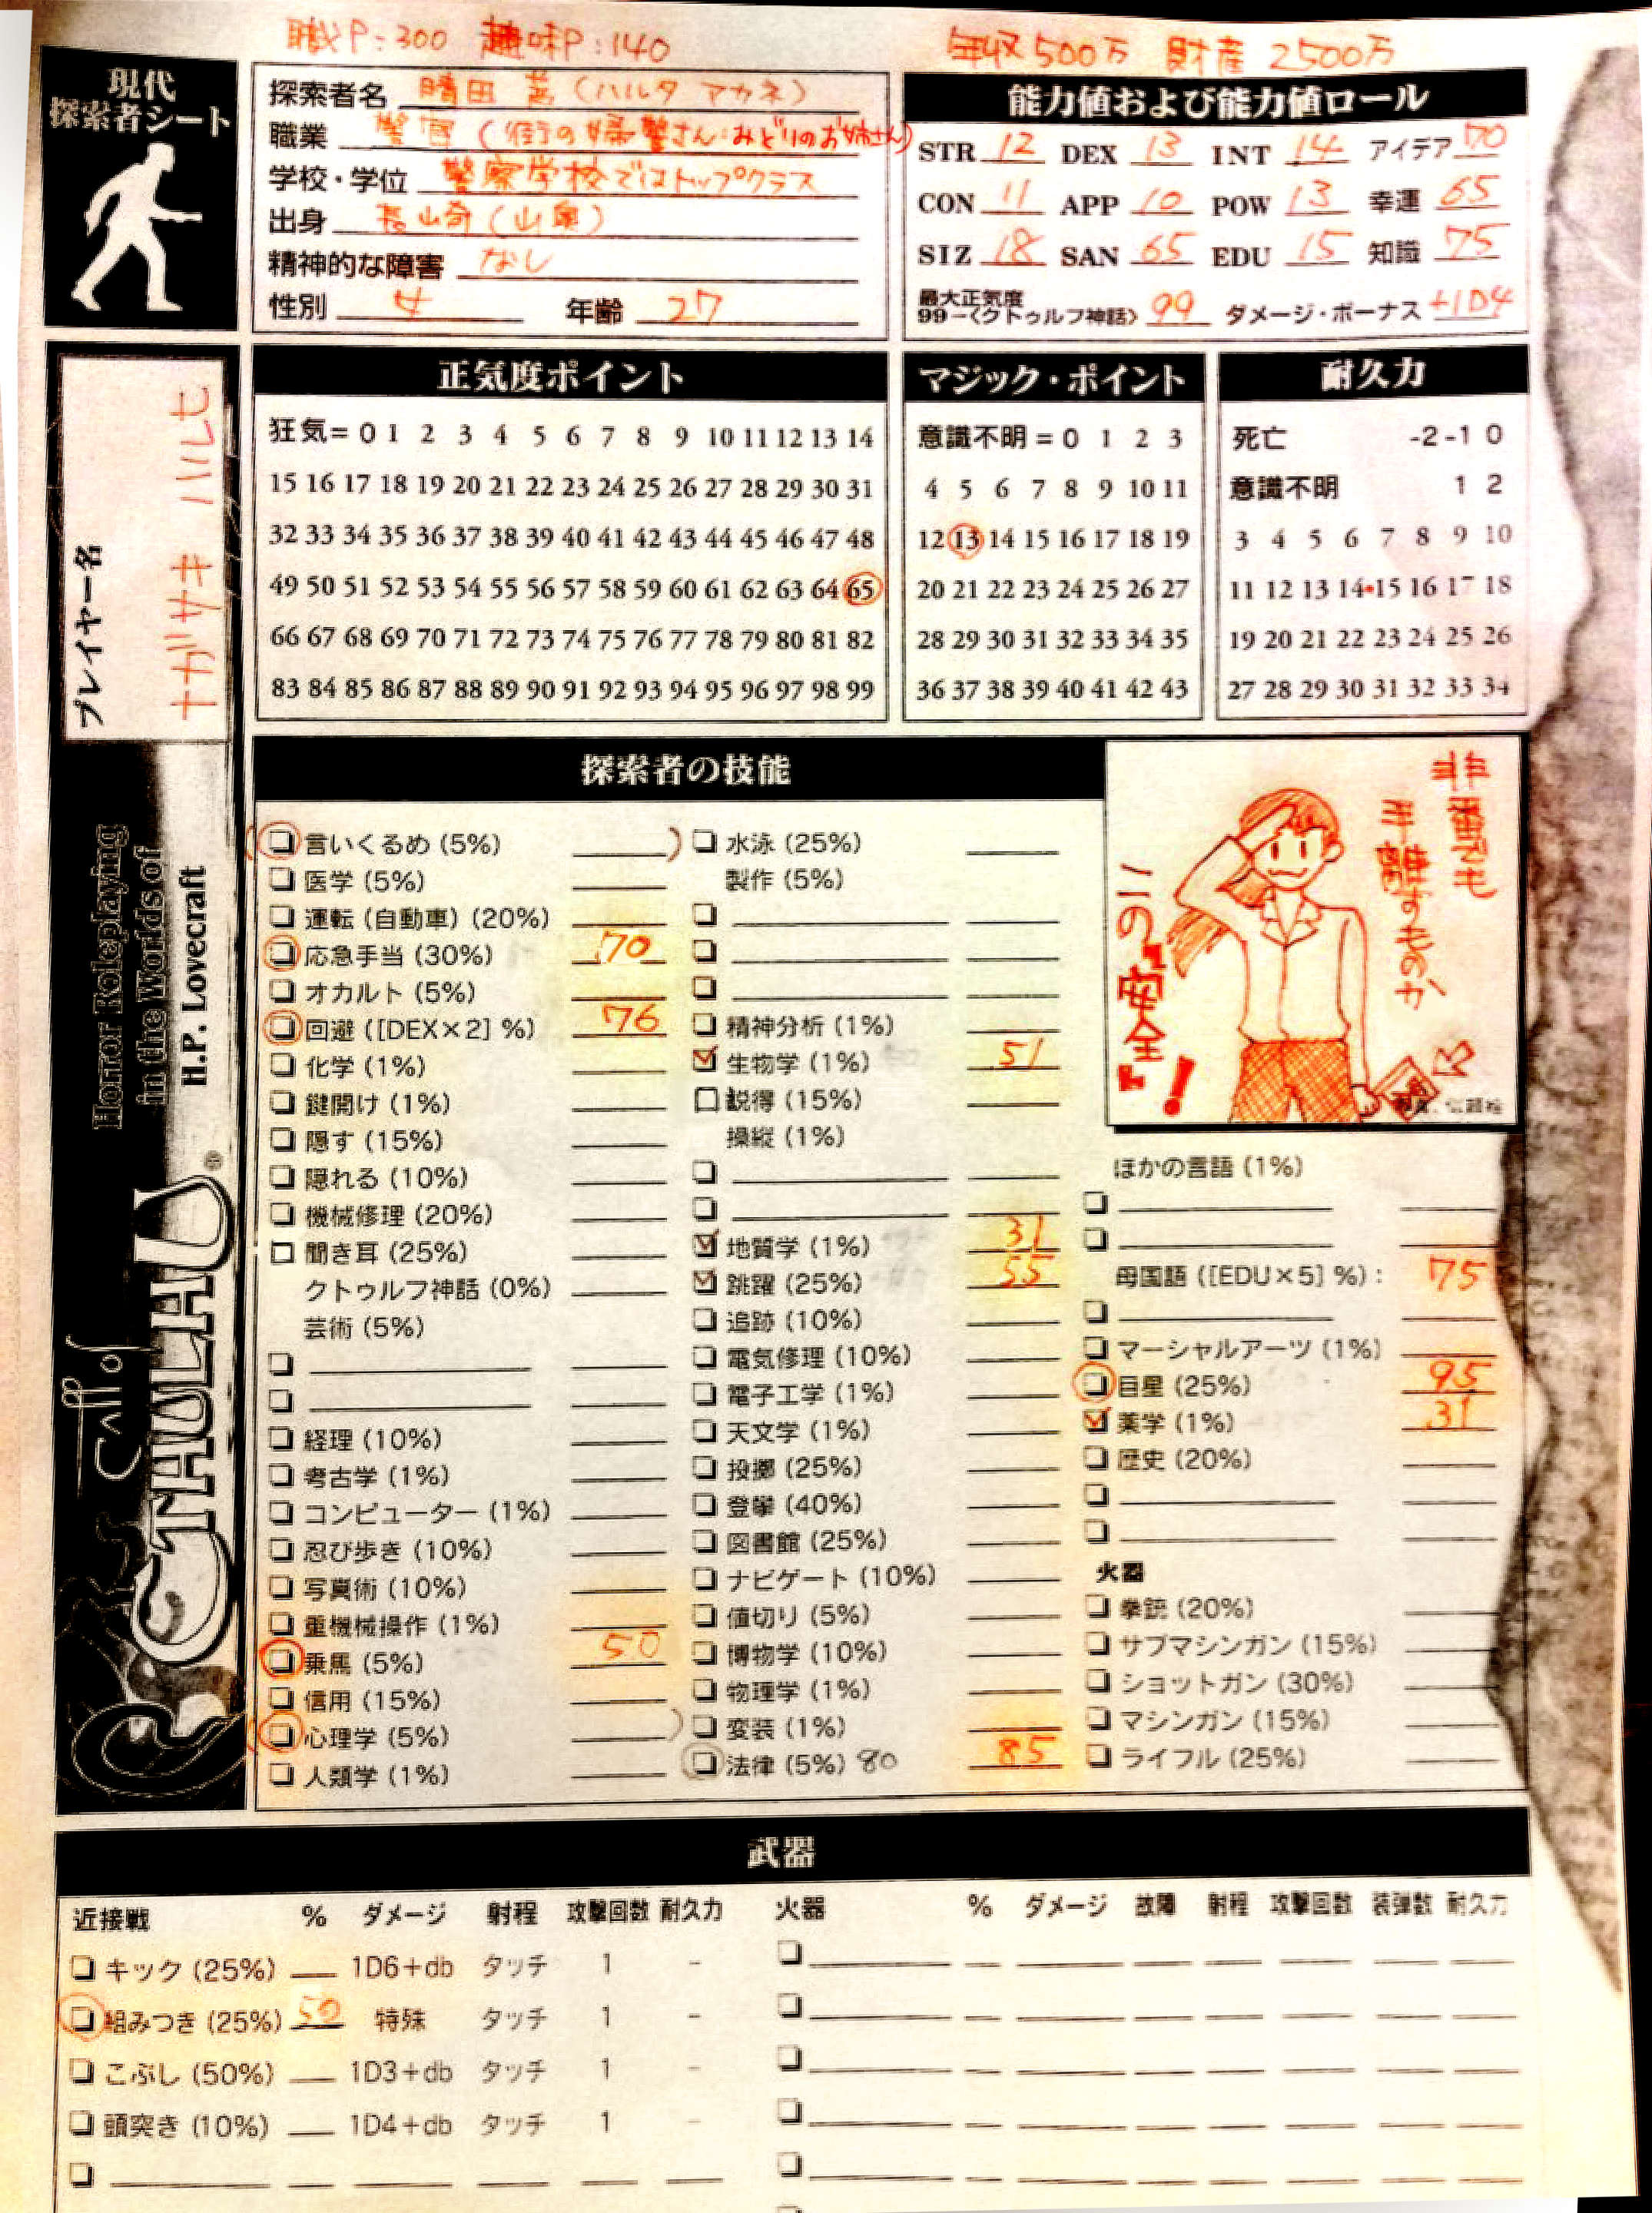 職P:300 趣味P:140
年収500万 財産2500万
現代
探索者シート
探索者名 晴田 茜(ハルタ アカネ)
職業 警官(街の婦警さん・みどりのお姉さん)
学校・学位 警察学校ではトップクラス
出身 長崎(山奥)
精神的な障害 なし
性別 女 年齢 27
能力値および能力値ロール
STR 12 DEX 13 INT 14 アイデア 70
CON 11 APP 10 POW 13 幸運 65
SIZ 18 SAN 65 EDU 15 知識 75
最大正気度
99-〈クトゥルフ神話〉 99 ダメージ・ボーナス +1D4
プレイヤー名
ナガサキ ハルヒ
正気度ポイント
狂気= 0 1 2 3 4 5 6 7 8 9 10 11 12 13 14
15 16 17 18 19 20 21 22 23 24 25 26 27 28 29 30 31
32 33 34 35 36 37 38 39 40 41 42 43 44 45 46 47 48
49 50 51 52 53 54 55 56 57 58 59 60 61 62 63 64 65
66 67 68 69 70 71 72 73 74 75 76 77 78 79 80 81 82
83 84 85 86 87 88 89 90 91 92 93 94 95 96 97 98 99
マジック・ポイント
意識不明 = 0 1 2 3
4 5 6 7 8 9 10 11
12 13 14 15 16 17 18 19
20 21 22 23 24 25 26 27
28 29 30 31 32 33 34 35
36 37 38 39 40 41 42 43
耐久力
死亡 -2 -1 0
意識不明 1 2
3 4 5 6 7 8 9 10
11 12 13 14・15 16 17 18
19 20 21 22 23 24 25 26
27 28 29 30 31 32 33 34
Horror Roleplaying
in the Worlds of
H.P. Lovecraft
Call of
CTHULHU®
探索者の技能
言いくるめ (5%)
医学 (5%)
運転 (自動車) (20%)
応急手当 (30%) 70
オカルト (5%)
回避 ([DEX×2] %) 76
化学 (1%)
鍵開け (1%)
隠す (15%)
隠れる (10%)
機械修理 (20%)
聞き耳 (25%)
クトゥルフ神話 (0%)
芸術 (5%)
経理 (10%)
考古学 (1%)
コンピューター (1%)
忍び歩き (10%)
写真術 (10%)
重機械操作 (1%)
乗馬 (5%) 50
信用 (15%)
心理学 (5%)
人類学 (1%)
水泳 (25%)
製作 (5%)
精神分析 (1%)
生物学 (1%) 51
説得 (15%)
操縦 (1%)
地質学 (1%) 31
跳躍 (25%) 55
追跡 (10%)
電気修理 (10%)
電子工学 (1%)
天文学 (1%)
投擲 (25%)
登攀 (40%)
図書館 (25%)
ナビゲート (10%)
値切り (5%)
博物学 (10%)
物理学 (1%)
変装 (1%)
法律 (5%) 80 85
非番でも
手離すものか
この『安全』!
ほかの言語 (1%)
母国語 ([EDU×5] %): 75
マーシャルアーツ (1%)
目星 (25%) 95
薬学 (1%) 31
歴史 (20%)
火器
拳銃 (20%)
サブマシンガン (15%)
ショットガン (30%)
マシンガン (15%)
ライフル (25%)
武器
近接戦 % ダメージ 射程 攻撃回数 耐久力
キック (25%) 1D6+db タッチ 1 -
組みつき (25%) 50 特殊 タッチ 1 -
こぶし (50%) 1D3+db タッチ 1 -
頭突き (10%) 1D4+db タッチ 1 -
火器 % ダメージ 故障 射程 攻撃回数 装弾数 耐久力